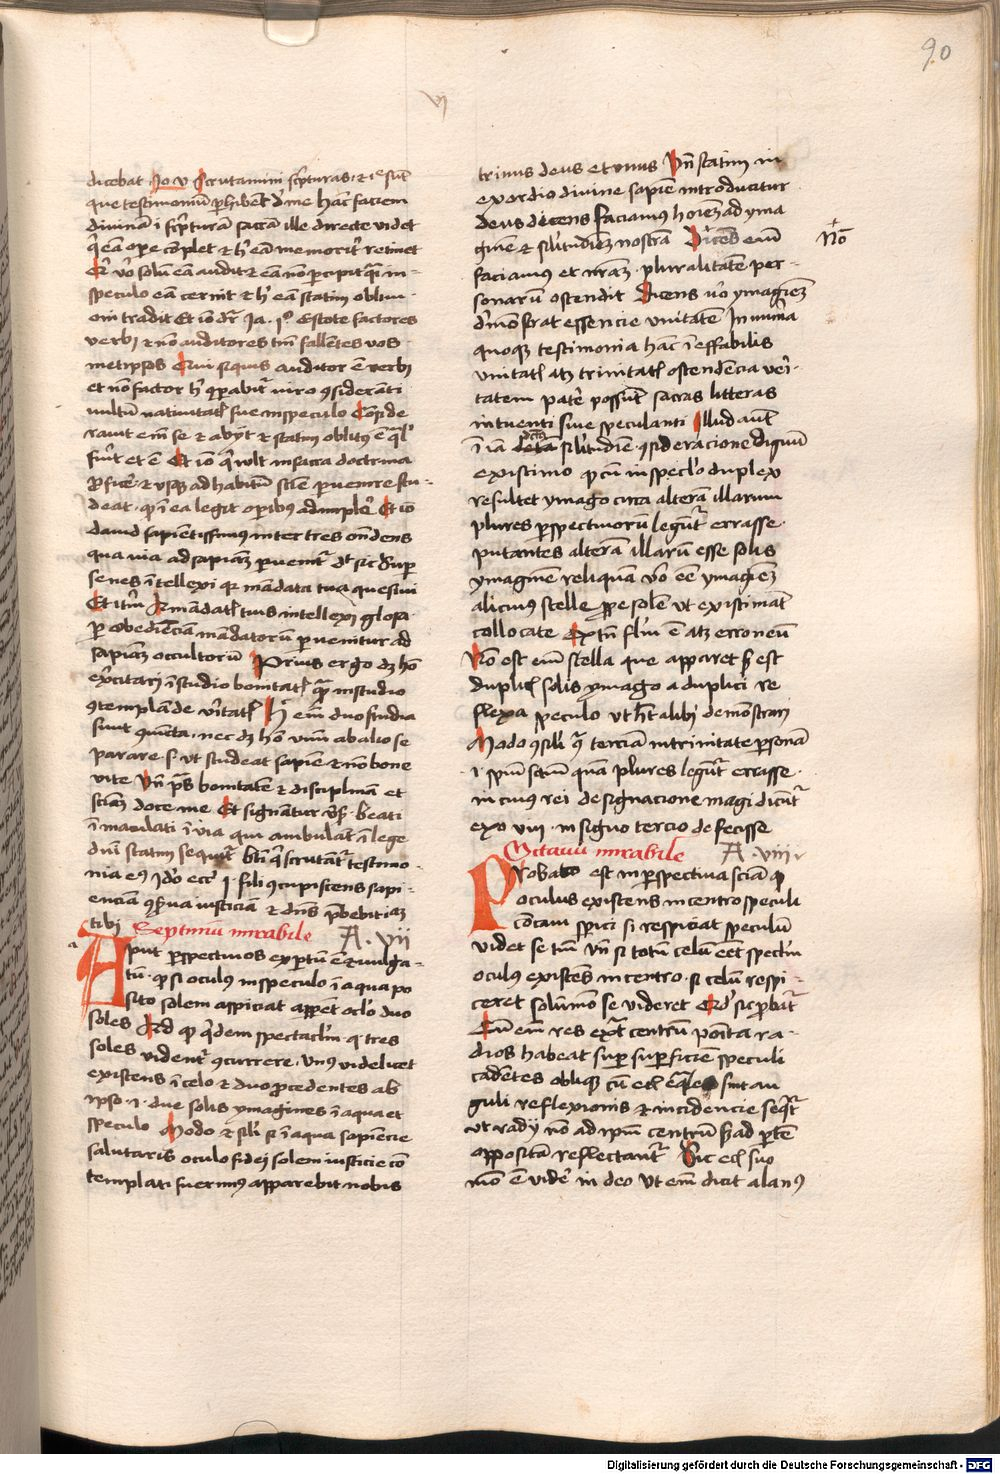 90
vj
dicebat Jo v Scrutamini scripturas
que testimonium perhibent de me hanc faciem
divinam in scripturam sacram ille directe videt
qui eam opere complet et hic eam memoriter retinet
speculo eam cernit et hic eam statim oblivi-
oni tradit Et io dr Ja. 1º Estote factores
verbi et non auditores tantum fallentes vos-
metipsos Quia siquis auditor est verbi
et non factor hic comparabitur viro consideranti
vultum nativitatis sue in speculo Conside
ravit enim se et abijt et statim oblitus est qualis
fuerit Et io qui vult in sacra doctrina
proficere et usque ad habitum scientie pervenire stu-
deat quod in ea legit operibus adimplere Et io
david sapientissimus inter tres ondens
qua via ad sapientiam pervenitur dicit sic Super
senes intellexi quia mandata tua quesivi
Et iterum A mandatis tuis intellexi glosa
per obedienciam mandatorum pervenitur ad
sapientiam occultorum Prius ergo debet homo
exercitari in studio bonitatis quam in studio
contemplande veritatis Hec enim duo studia
sunt coniuncta, nec debet homo unum ab alio se
parare. s. ut studeat sapiencie et non bone
vite Unde propheta bonitatem et disciplinam et
scienciam doce me Et signantur versus Beati
inmaculati in via qui ambulant in lege
domini statim sequitur beati qui scrutantur testimo-
nia eius Ideo ecci 1. fili concupiscens sapi-
enciam conserva iusticiam et dominus prebebit eam
tibi Septimum mirabile A. vij
Aput perspectivos expertum est et vulga-
tum quod si oculus in speculo in aqua po
sito solem aspiciat apparent oculo duo
soles
soles videntur concurrere. Unus videlicet
existens in celo et duo procedentes ab
ipso .i. due solis ymagines in aqua et
speculo Modo et simili si in aqua sapiencie
salutaris oculo fidei solem iusticie con
templati fuerimus apparebit nobis
trinus deus et unus Unde statim in
exordio divine sapiencie introducitur
deus dicens faciamus hominem ad yma
ginem et similitudinem nostram Dicens enim
No
faciamus et nostram pluralitatem per-
sonarum ostendit Dicens vero ymaginem
demonstrat essencie unitatem Innumera
quoque testimonia hanc ineffabilis
unitatis atque trinitatis ostendencia veri-
tatem patere possunt sacras litteras
intuenti sive speculanti Illud autem
in iam dicta similitudine consideracione dignum
existimo quod cum in speculo duplex
resultet ymago circa alteram illarum
plures perspectivorum leguntur errasse.
putantes alteram illarum esse solis
ymaginem reliquam vero esse ymaginem
alicuius stelle prope solem ut existimant
collocate Extra falsum est atque erroneum
Non est enim stella que apparet sed est
duplex solis ymago a duplici re
flexa speculo ut habet alibi demonstrari
Modo consimili circa terciam in trinitate personam
.i. spiritum sanctum quam plures leguntur errasse.
in cuius rei designacione magi dicuntur
exo viij. in signo tercio defecisse
Octavum mirabile A. viij
Probatum est in perspectiva sciencia quod
oculus existens in centro speculi
concavi sperici si respiciat speculum
videt se tantum Unde si totum celum esset speculum
oculus existens in centro si celum respi-
ceret solummodo se videret Quod sic probatur
Cum enim res extra centrum posita ra-
dios habeat super superficiem speculi
cadentes oblique cum eciam equales sint an
guli reflexionis et incidencie sequitur
ut radij non ad ipsum centrum sed ad partem
oppositam reflectantur Sic eciam suo
modo est videre in deo Ut enim dicit alanus
Digitalisierung gefördert durch die Deutsche Forschungsgemeinschaft - DFG